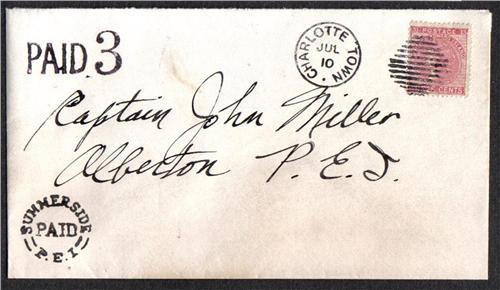 PAID 3
CHARLOTTE TOWN
JUL
10
POSTAGE
CENTS
Captain John Miller
Alberton P.E.I.
SUMMERSIDE
PAID
P.E.I